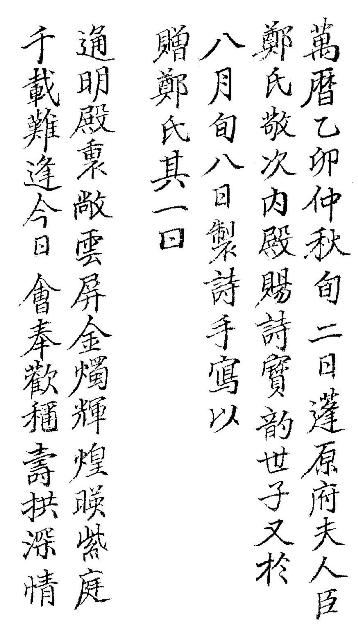 萬曆乙卯仲秋旬二日蓬原府夫人臣
鄭氏敬次內殿賜詩寶韵世子又於
八月旬八日製詩手寫以
贈鄭氏其一曰
通明殿裏敞雲屏金燭輝煌暎紫庭
千載難逢今日會奉歡稱壽拱深情